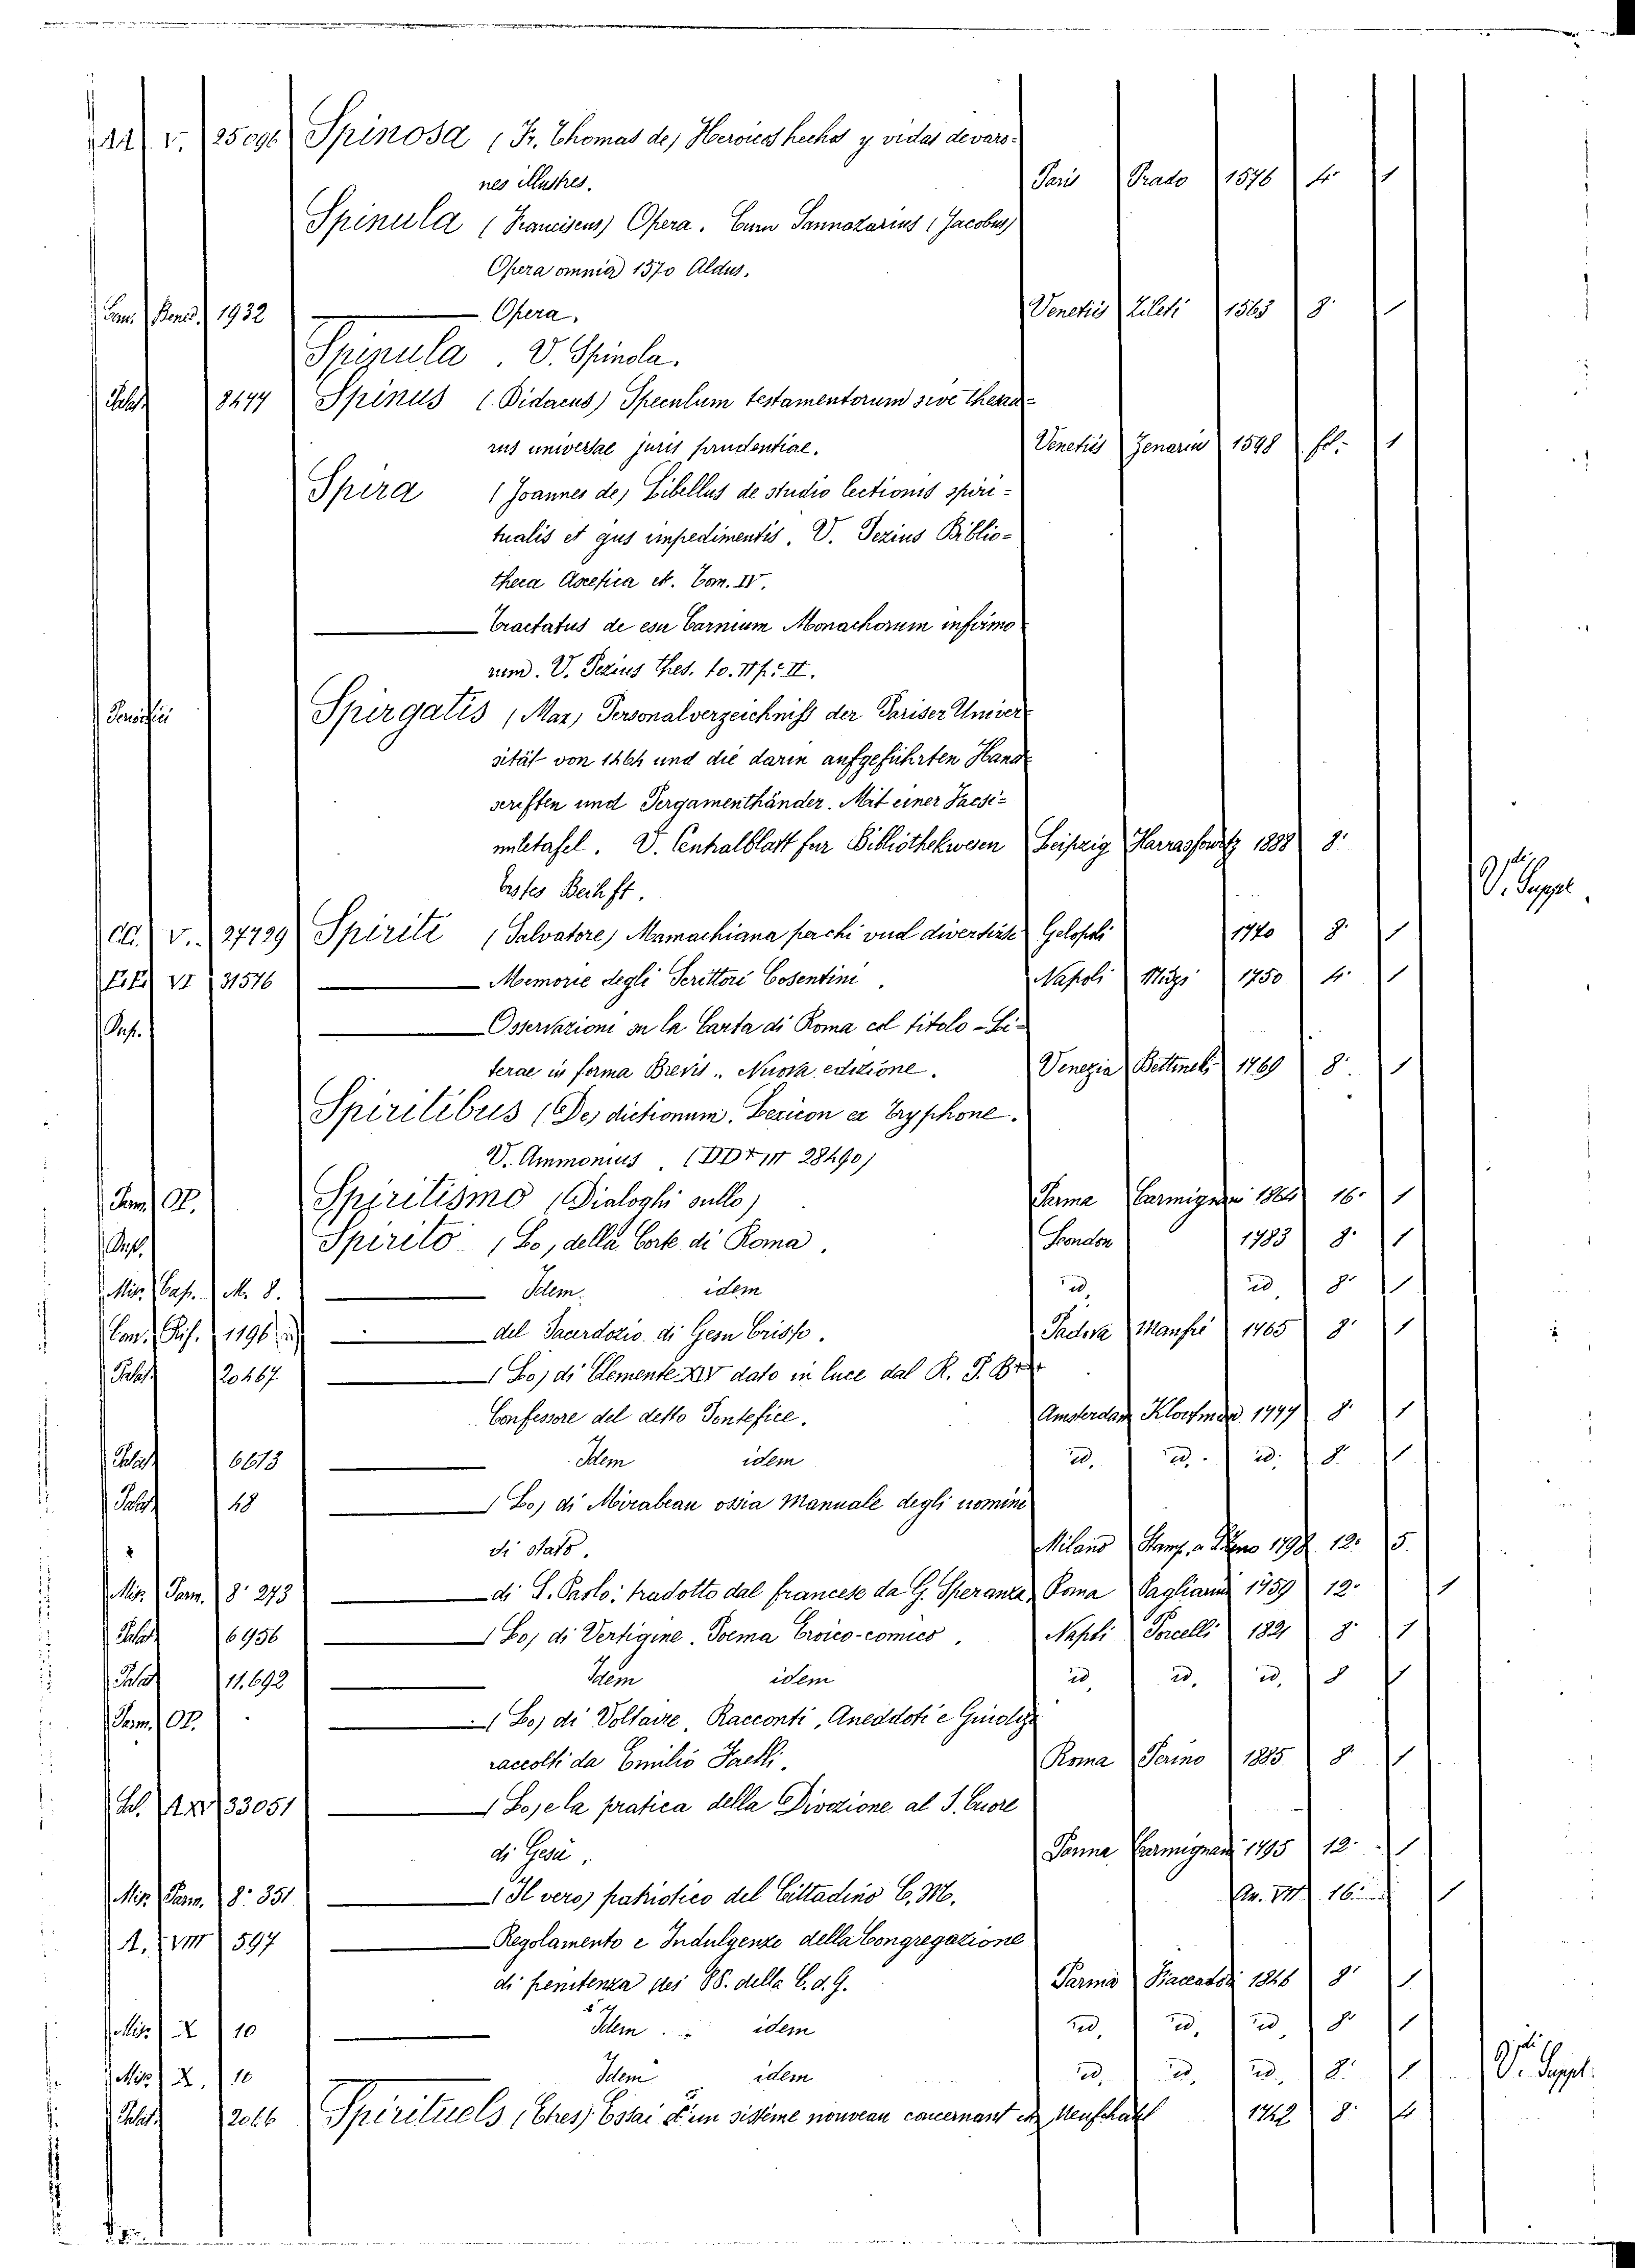 V. 25096 Spinosa (Fr. Thomas de) Heroicos hechos y vidas de varo-
nes illustres. Paris Prado 1576 4º 1
Spinula (Franciscus) Opera. Cum Sannazarius (Jacobus)
Opera omnia 1570 Aldus.
Bened. 1932 Opera. Venetiis Zileti 1563 8º 1
Spinula. V. Spinola.
Palat. 8244 Spinus (Didacus) Speculum testamentorum sive thesau-
rus universae juris prudentiae. Venetiis Zenarius 1598 fol. 1
Spira (Joannes de) Libellus de studio lectionis spiri-
tualis et ejus impedimentis. V. Pezius Biblio-
theca Ascetica etc. Tom. IV.
Tractatus de esu Carnium Monachorum infirmo-
rum. V. Pezius Thes. to. II p. II.
Spirgatis (Max) Personalverzeichniss der Pariser Univer-
sität von 1464 und die darin aufgeführten Hand-
scriften und Pergamenthänder. Mit einer Facsi-
miletafel. V. Centralblatt fur Bibliothekwesen Leipzig Harrassowitz 1888 8º
Erstes Beihft.
V. Suppl.
CC. V. 27729 Spiriti (Salvatore) Mamachiana perchi vuol divertirsi Gelopoli 1770 8º 1
VI 31576 Memorie degli Scrittori Cosentini. Napoli Muzi 1750 4º 1
Osservazioni su la Carta di Roma col titolo - Li-
terae in forma Brevis.. Nuova edizione. Venezia Bettinelli 1769 8º 1
Spiritibus (De) dictionum. Lexicon ex Tryphone.
V. Ammonius. (DD 28490)
Parm. OP. Spiritismo (Dialoghi sullo) Parma Carmignani 1864 16º 1
Spirito (Lo) della Corte di Roma. London 1783 8º 1
Mis. Cap. M. 8. Idem. idem id. id. 8º 1
1196 del Sacerdozio di Gesu Cristo. Padova Manfré 1765 8º 1
Palat. 20467 (Lo) di Clemente XIV dato in luce dal R. P. B***
Confessore del detto Pontefice. Amsterdam 1777 8º 1
Palat. 6613 Idem idem id. id. id. 8º 1
Palat. 48 (Lo) di Mirabeau ossia Manuale degli uomini
di stato. Milano 12º 5
Mis. Parm. 8º 273 di S. Paolo: tradotto dal francese da G. Speranza Roma Pagliarini 1759 12º 1
Palat. 6956 (Lo) di Vertigine. Poema Eroico-comico. Napoli Porcelli 1821 8º 1
Palat. 11.692 Idem idem id. id. id. 8 1
Parm. OP. (Lo) di Voltaire, Racconti, Aneddoti e
raccolti da Emilio Faelli. Roma Perino 1885 8 1
33051 (Lo) e la pratica della Divozione al S. Cuore
di Gesù. Parma Carmignani 1795 12º 1
Mis. Parm. 8º 351 (Il vero) patriotico del Cittadino C. M. An. VII 16º 1
A. VIII 597 Regolamento e Indulgenze della Congregazione
di penitenza dei PP. della C. d. G. Parma 1846 8º 1
Mis. X 10 Idem idem id. id. id. 8º 1
Mis. X. 10 Idem idem id. id. id. 8º 1
V. Suppl.
Palat. 2066 Spirituels (Etres) Essai d'un sistème nouveau concernant les Neufchatel 1742 8º 4